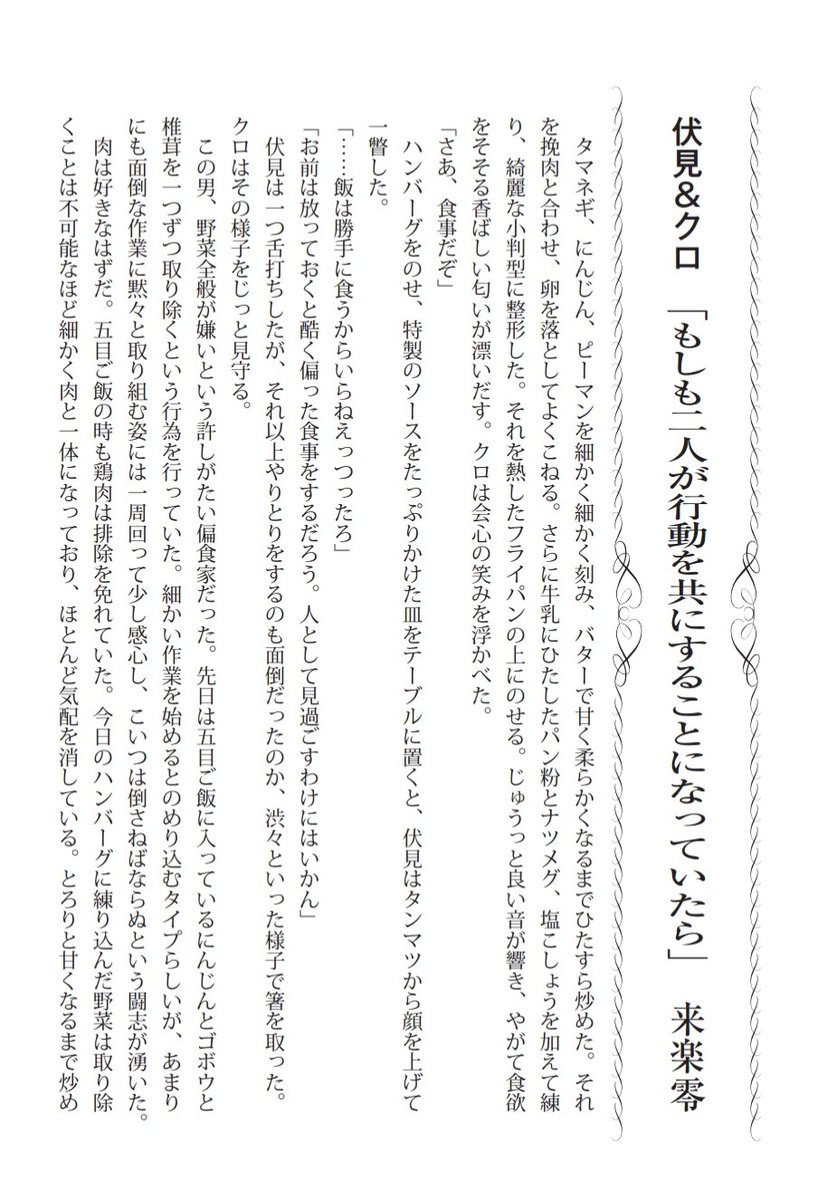 伏見＆クロ　「もしも二人が行動を共にすることになっていたら」　来楽零
　タマネギ、にんじん、ピーマンを細かく細かく刻み、バターで甘く柔らかくなるまでひたすら炒めた。それ
を挽肉と合わせ、卵を落としてよくこねる。さらに牛乳にひたしたパン粉とナツメグ、塩こしょうを加えて練
り、綺麗な小判型に整形した。それを熱したフライパンの上にのせる。じゅうっと良い音が響き、やがて食欲
をそそる香ばしい匂いが漂いだす。クロは会心の笑みを浮かべた。
「さあ、食事だぞ」
　ハンバーグをのせ、特製のソースをたっぷりかけた皿をテーブルに置くと、伏見はタンマツから顔を上げて
一瞥した。
「……飯は勝手に食うからいらねえっつったろ」
「お前は放っておくと酷く偏った食事をするだろう。人として見過ごすわけにはいかん」
　伏見は一つ舌打ちしたが、それ以上やりとりをするのも面倒だったのか、渋々といった様子で箸を取った。
クロはその様子をじっと見守る。
　この男、野菜全般が嫌いという許しがたい偏食家だった。先日は五目ご飯に入っているにんじんとゴボウと
椎茸を一つずつ取り除くという行為を行っていた。細かい作業を始めるとのめり込むタイプらしいが、あまり
にも面倒な作業に黙々と取り組む姿には一周回って少し感心し、こいつは倒さねばならぬという闘志が湧いた。
　肉は好きなはずだ。五目ご飯の時も鶏肉は排除を免れていた。今日のハンバーグに練り込んだ野菜は取り除
くことは不可能なほど細かく肉と一体になっており、ほとんど気配を消している。とろりと甘くなるまで炒め